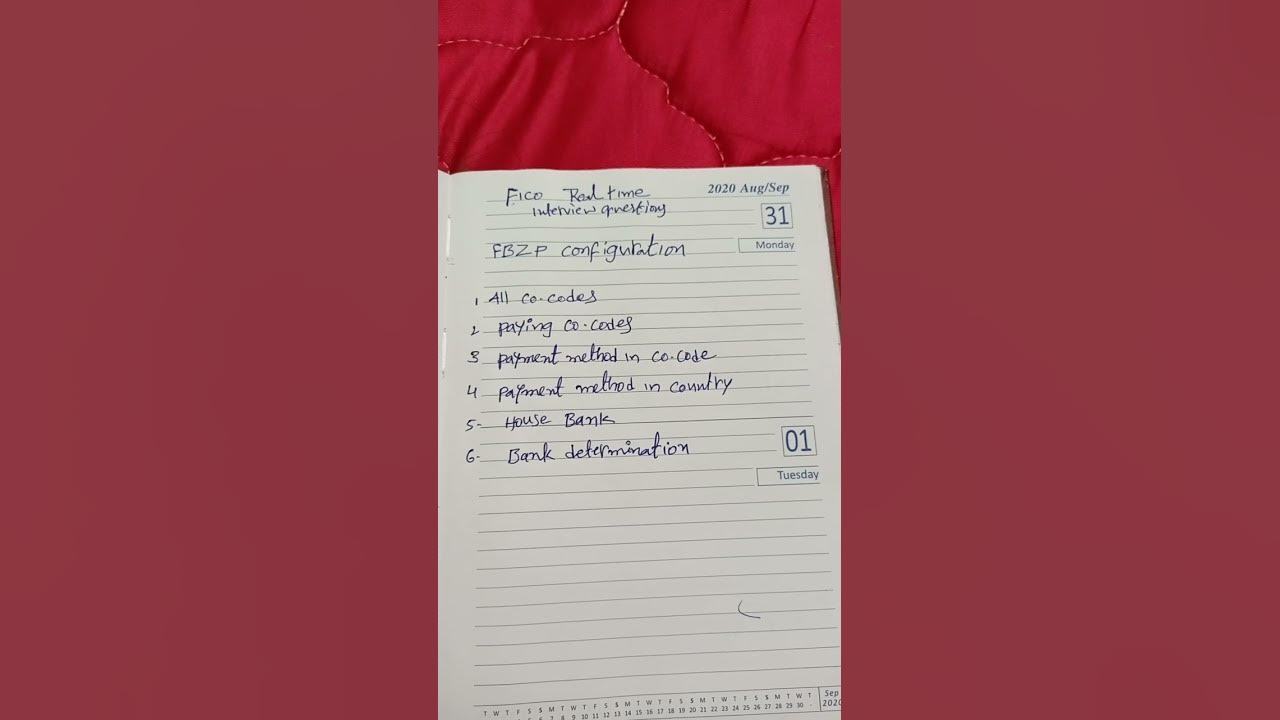 FICO Real time 2020 Aug/Sep
interview questions
31
FBZP configuration Monday
1 All co.codes
2 paying co.codes
3 payment method in co.code
4 payment method in country
5- House Bank
6- Bank determination 01
Tuesday
T W T F S S M T W T F S S M T W T F S S M T W T F S S M T W T Sep
7 8 9 10 11 12 13 14 15 16 17 18 19 20 21 22 23 24 25 26 27 28 29 30 2020